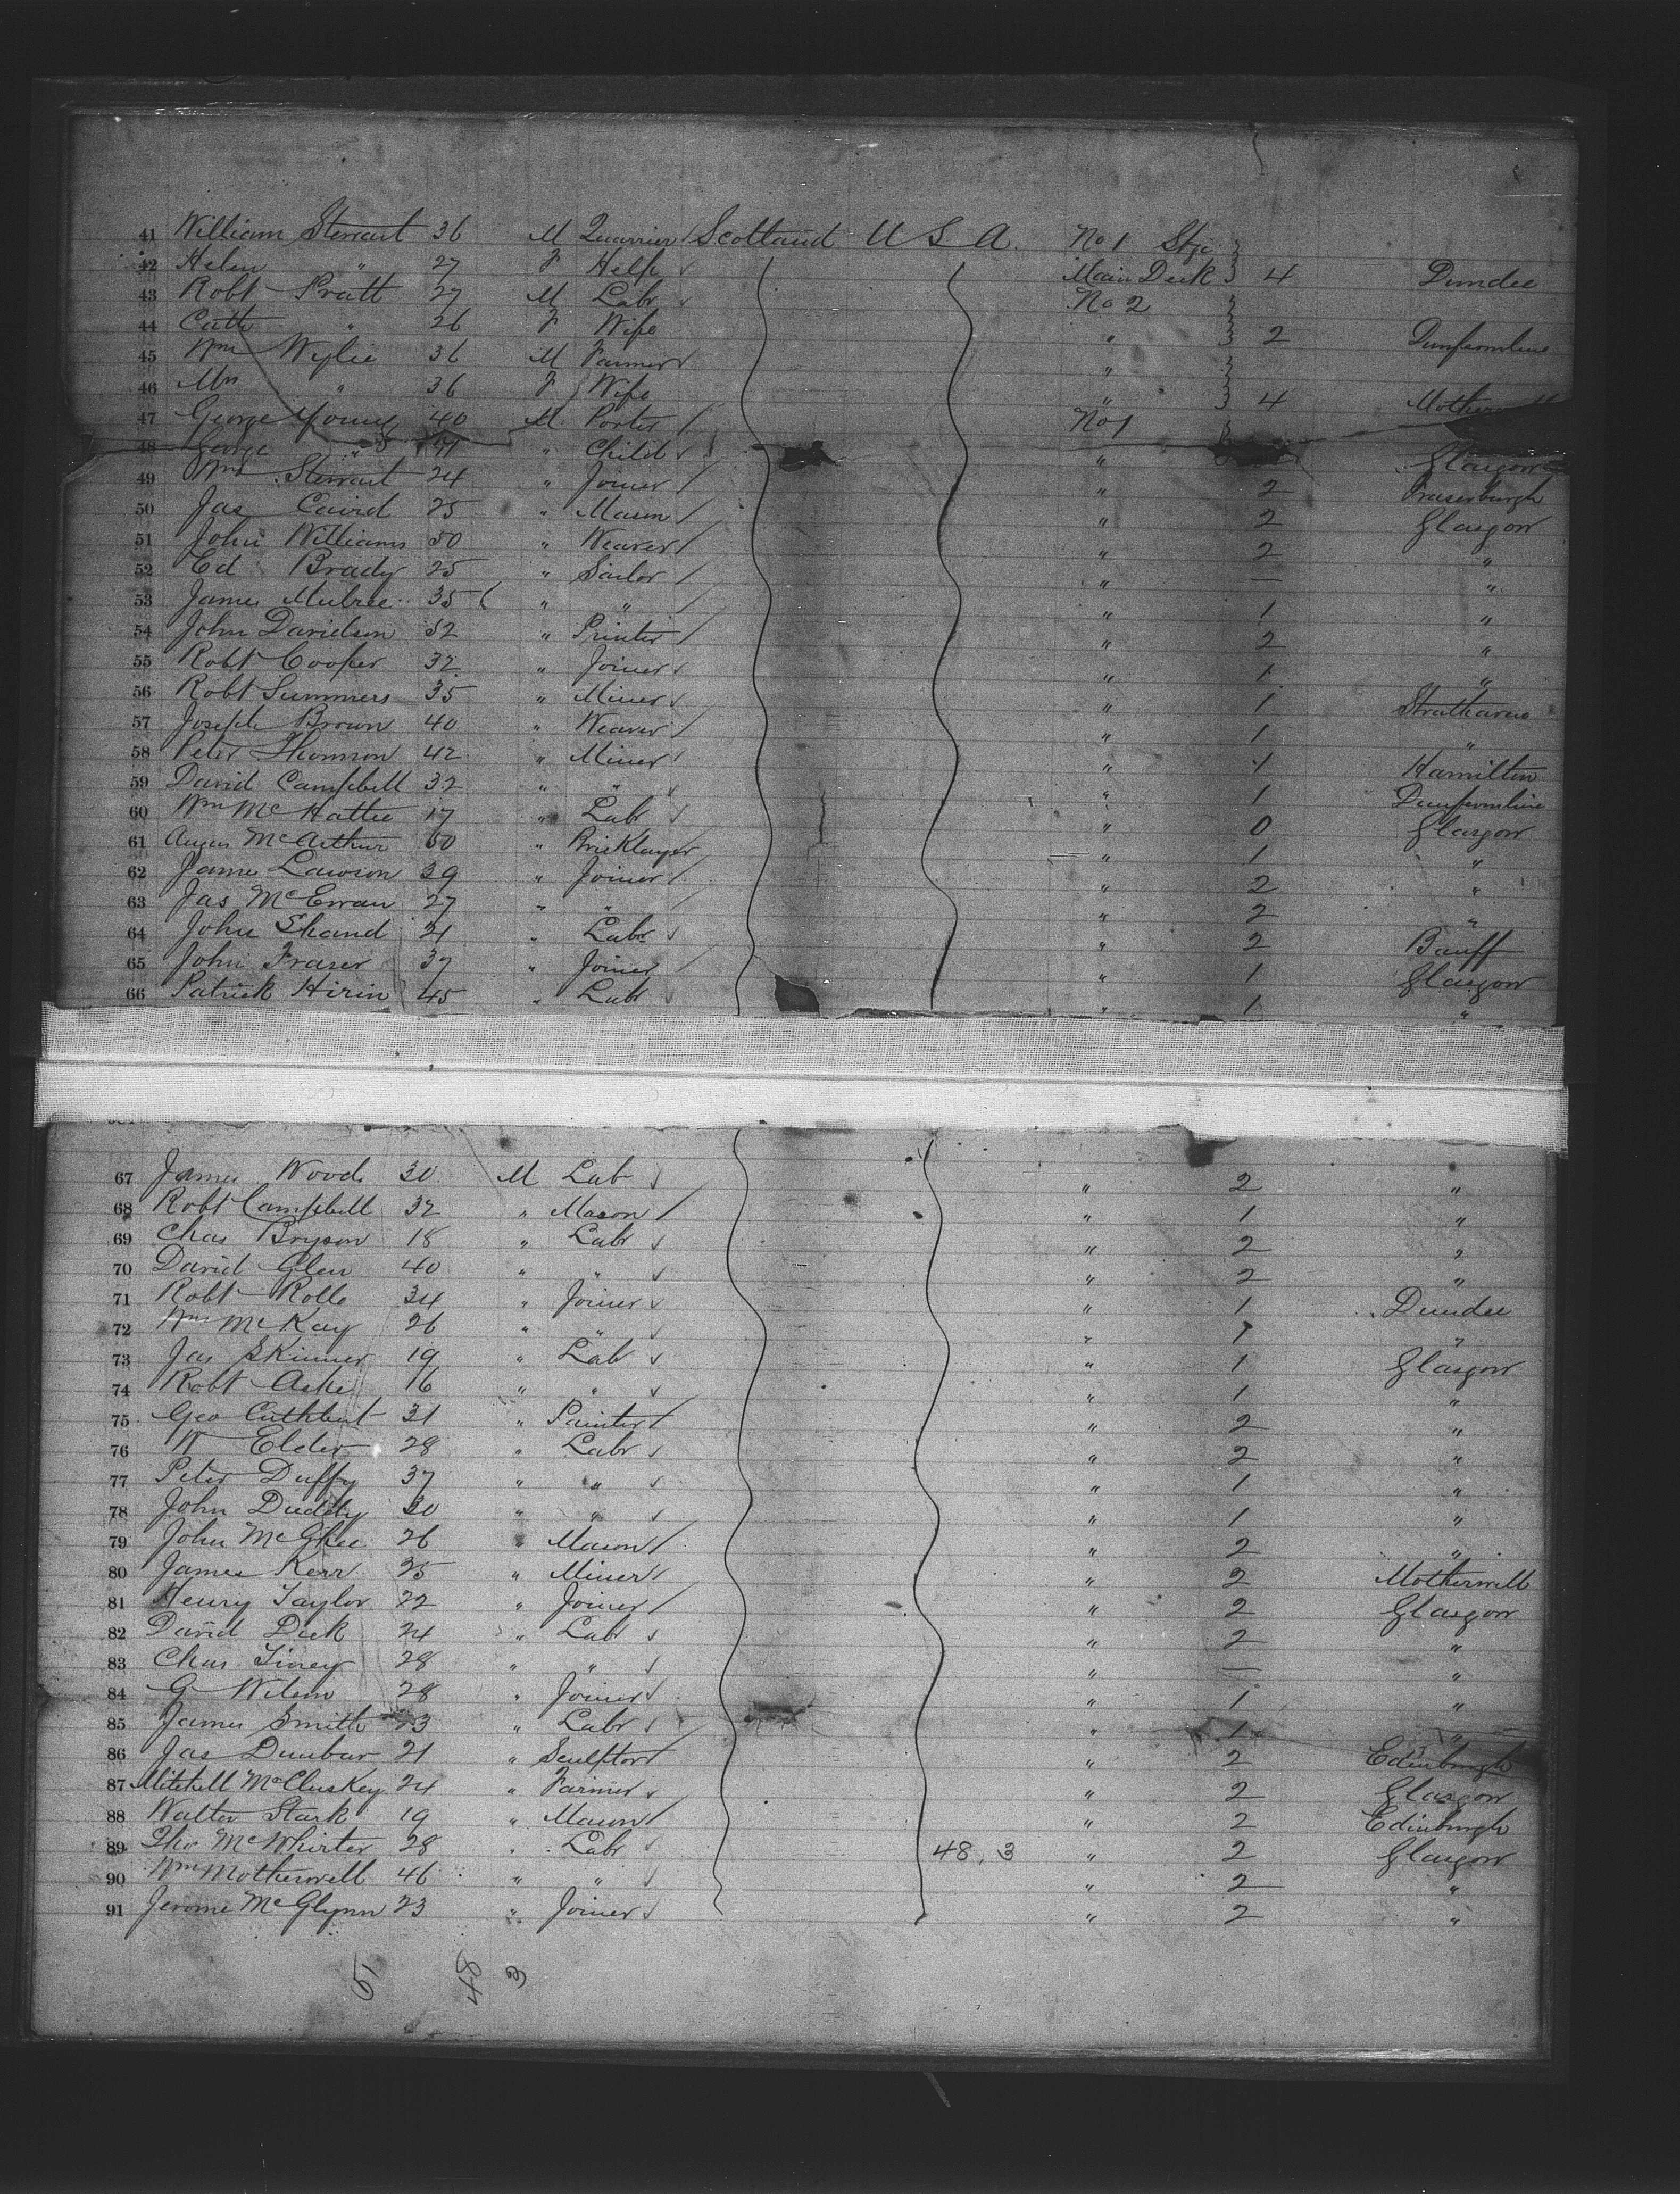 41 William Stewart 36 M Quarrier Scotland U S A. No 1 Stge
42 Helen " 27 F Help Main Deck 4 Dundee
43 Robt Pratt 27 M Labr No 2
44 Cath " 26 F Wife " 2 Dunfermline
45 Wm Wylie 36 M Farmer "
46 Mrs " 36 F Wife " 4 Motherwell
47 George Young 40 M Porter No 1
48 George " " Child " Glasgow
49 Wm Stewart 24 " Joiner " 2 Fraserburgh
50 Jas Caird 25 " Mason " 2 Glasgow
51 John Williams 50 " Weaver " 2 "
52 Ed Brady 25 " Sailor " — "
53 James 35 " " " 1 "
54 John Davidson 52 " Printer " 2 "
55 Robt Cooper 32 " Joiner " 1 "
56 Robt Summers 35 " Miner " 1 Strathaven
57 Joseph Brown 40 " Weaver " 1 "
58 Peter Thomson 42 " Miner " 1 Hamilton
59 David Campbell 32 " " " 1 Dunfermline
60 Wm McHattie 17 " Labr " 0 Glasgow
61 Angus McArthur 60 " Bricklayer " 1 "
62 James Lawson 39 " Joiner " 2 "
63 Jas McEwan 27 " " " 2 "
64 John Shand 21 " Labr " 2 Banff
65 John Fraser 37 " Joiner " 1 Glasgow
66 Patrick Hirin 45 " Labr " 1 "
67 James Wood 30 M Labr " 2 "
68 Robt Campbell 32 " Mason " 1 "
69 Chas Bryson 18 " Labr " 2 "
70 David Glen 40 " " " 2 "
71 Robt Rollo 34 " Joiner " 1 Dundee
72 Wm McKay 26 " " " 1 "
73 Jas Skinner 19 " Labr " 1 Glasgow
74 Robt Aske 16 " " " 1 "
75 Geo Cuthbert 31 " Painter " 2 "
76 W Elder 28 " Labr " 2 "
77 Peter Duffy 37 " " " 1 "
78 John Duddy 30 " " " 1 "
79 John McGhee 26 " Mason " 2 "
80 James Kerr 25 " Miner " 2 Motherwell
81 Henry Taylor 22 " Joiner " 2 Glasgow
82 David Dick 24 " Labr " 2 "
83 Chas Tiney 28 " " " — "
84 G Wilson 28 " Joiner " 1 "
85 James Smith 23 " Labr " 1 "
86 Jas Dunbar 21 " Sculptor " 2 Edinburgh
87 Mitchell McCluskey 24 " Farmer " 2 Glasgow
88 Walter Stark 19 " Mason " 2 Edinburgh
89 Tho McWhirter 28 " Labr 48, 3 " 2 Glasgow
90 Wm Motherwell 46 " " " 2 "
91 Jerome McGlynn 23 " Joiner " 2 "
51 48 3